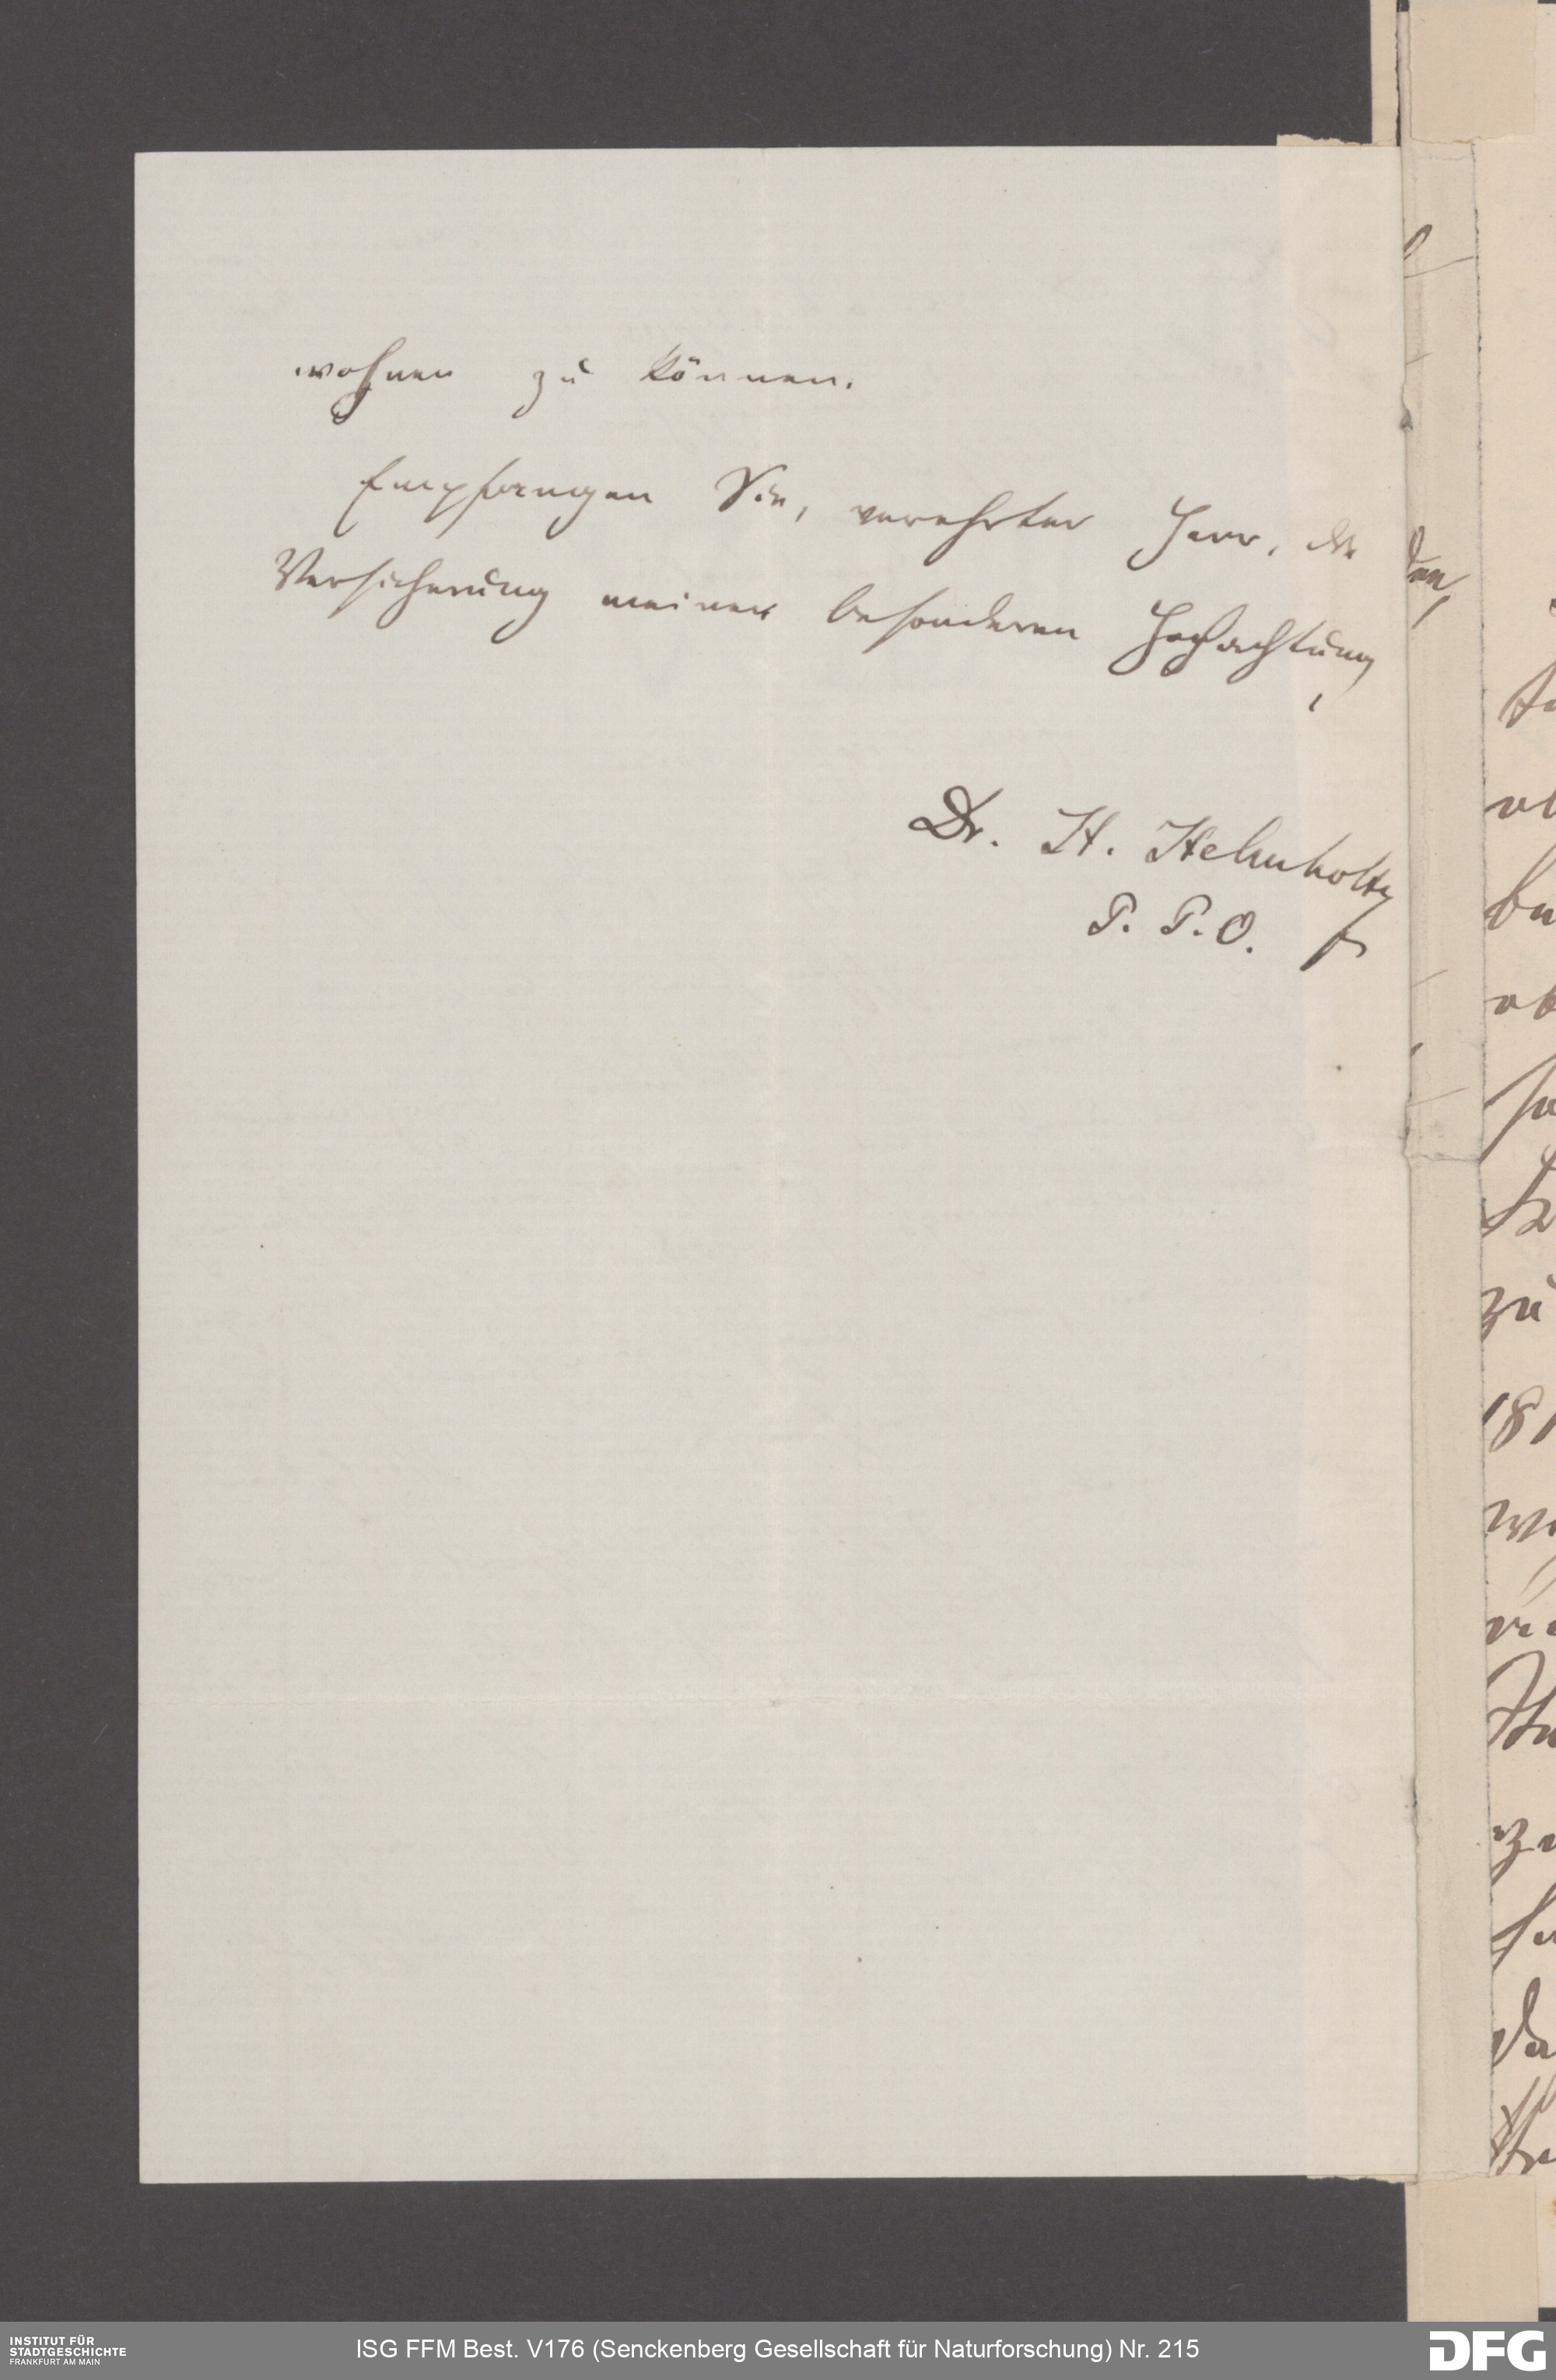 wohnen zu können.
Empfangen Sie, verehrter Herr, die
Versicherung meiner besonderen Hochachtung
,
Dr. H. Helmholtz
P. P. O.
den,
zu
INSTITUT FÜR
STADTGESCHICHTE
FRANKFURT AM MAIN
ISG FFM Best. V176 (Senckenberg Gesellschaft für Naturforschung) Nr. 215
DFG